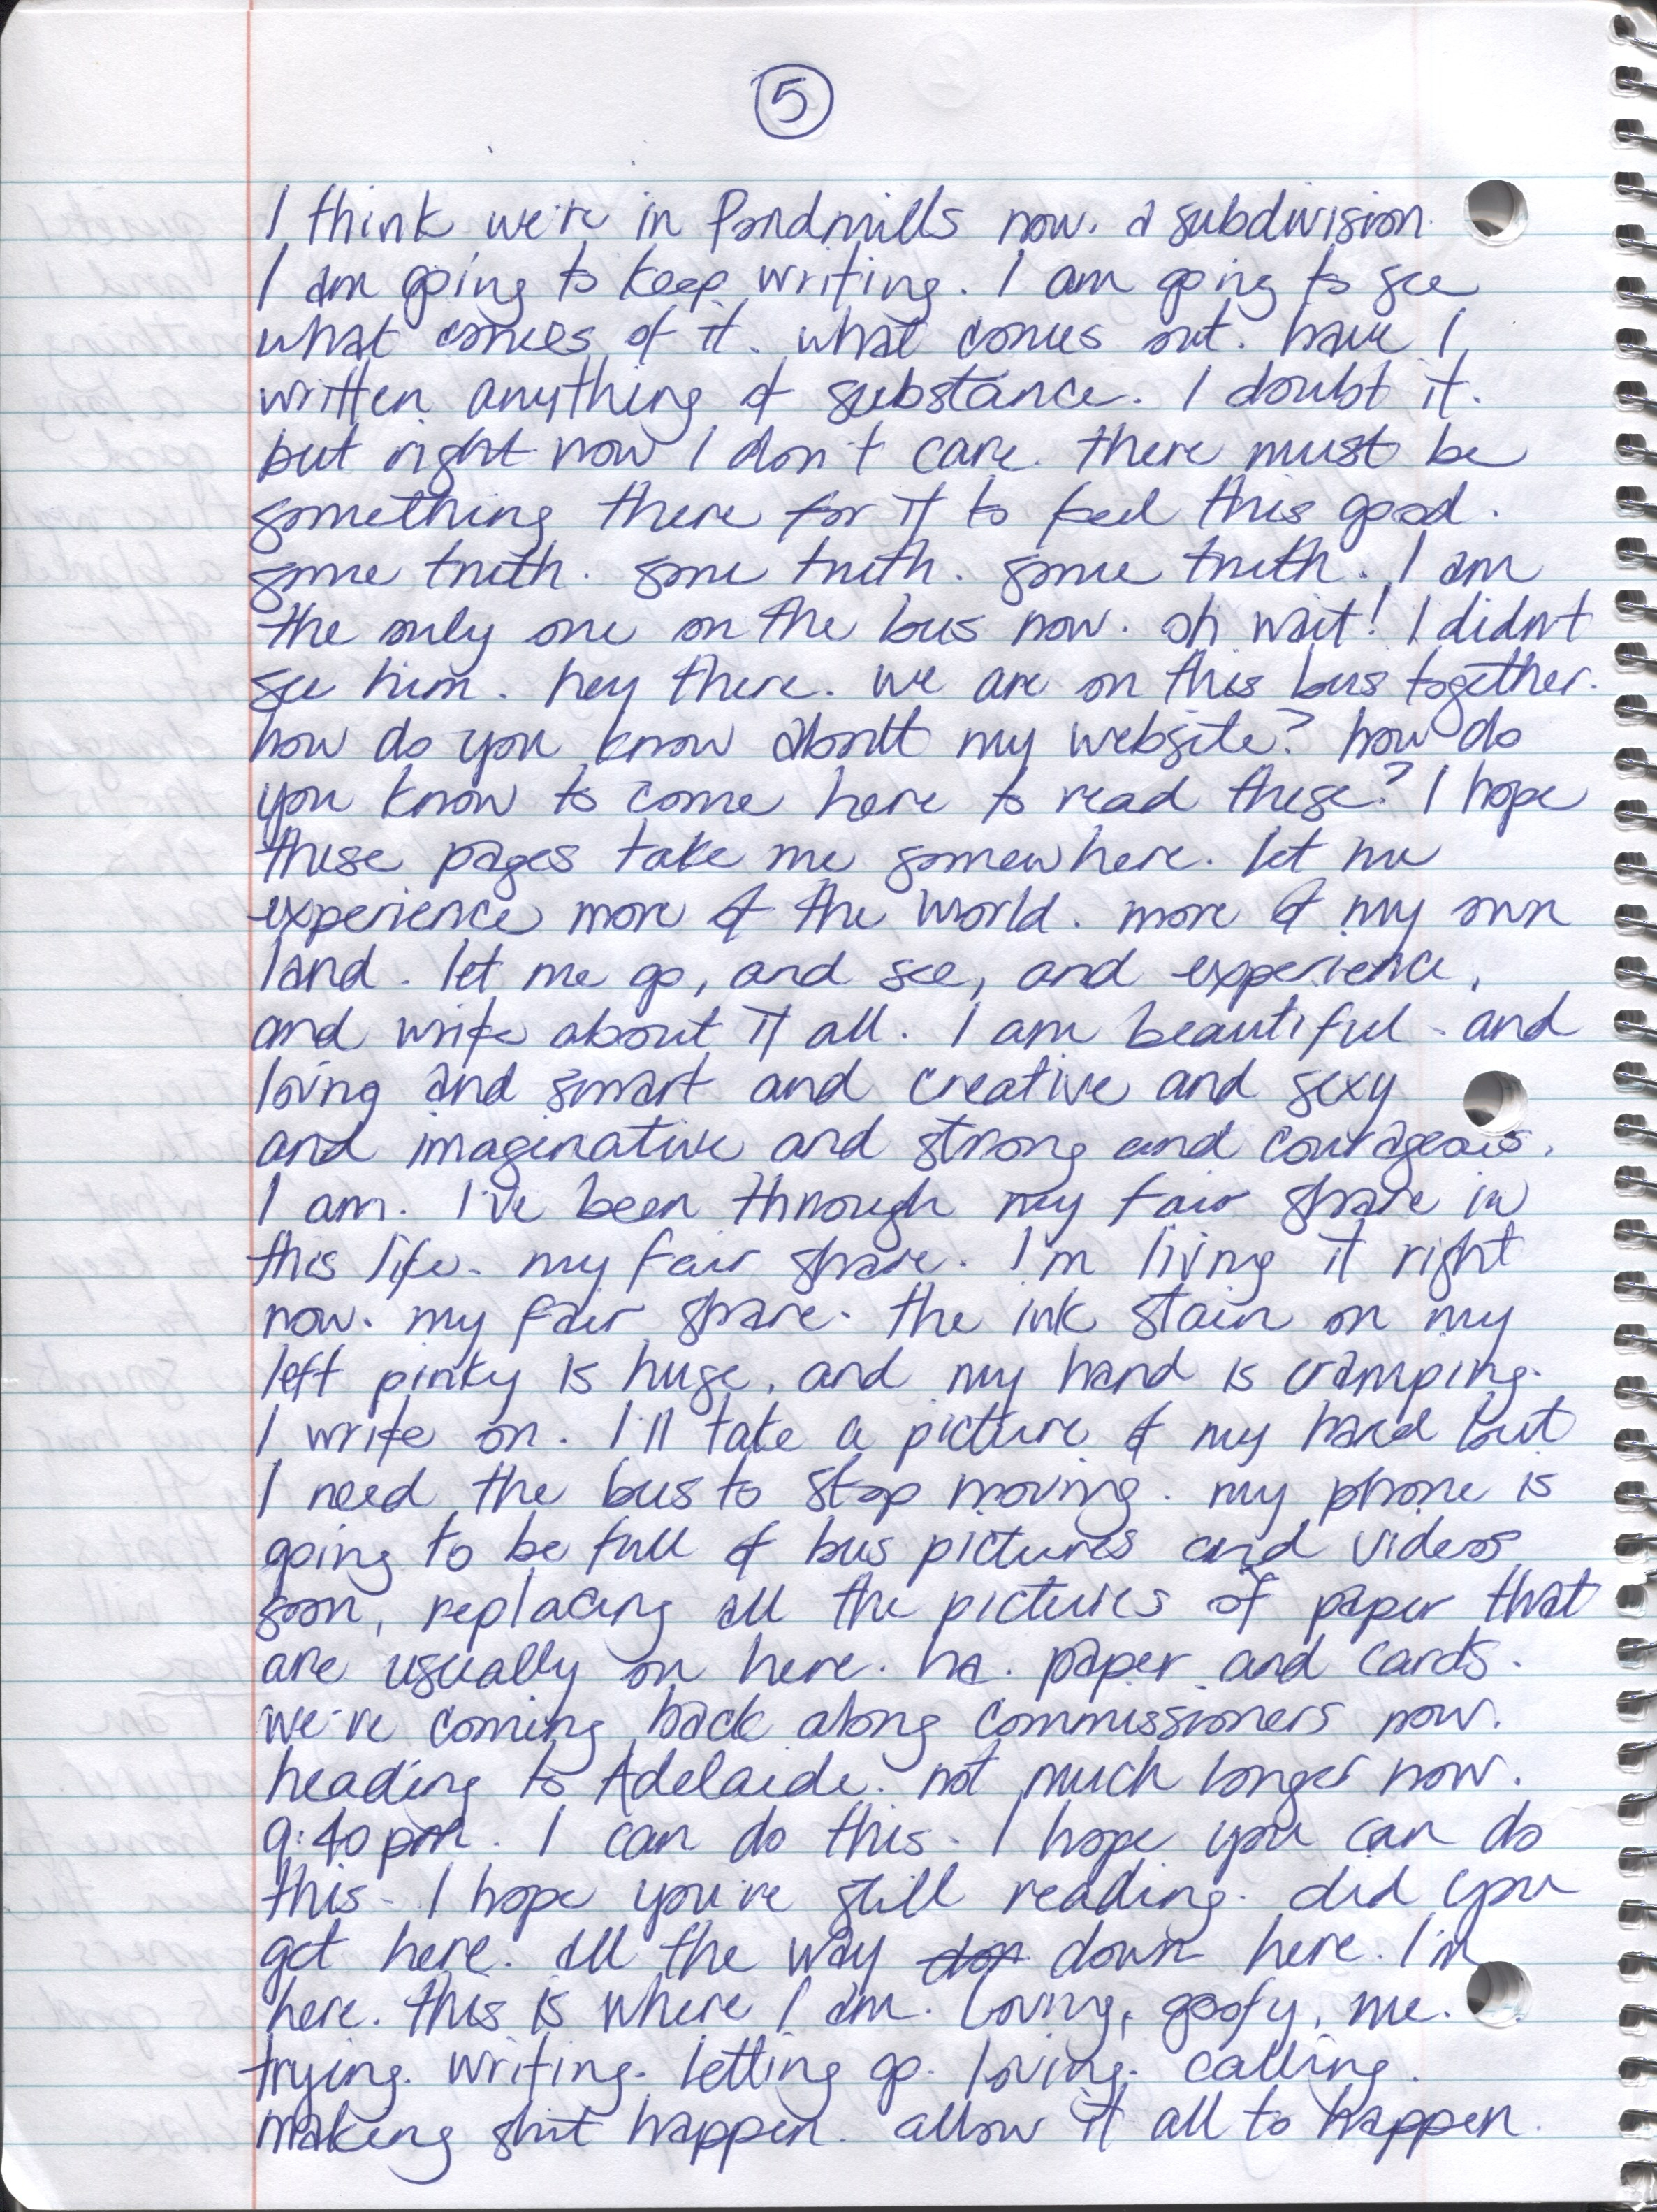 5
I think we're in Pondmills now. a subdivision.
I am going to keep writing. I am going to see
what comes of it. what comes out. have I
written anything of substance. I doubt it.
but right now I don't care. there must be
something there for it to feel this good.
some truth. some truth. some truth. I am
the only one on the bus now. oh wait! I didn't
see him. hey there. we are on this bus together.
how do you know about my website? how do
you know to come here to read these? I hope
these pages take me somewhere. let me
experience more of the world. more of my own
land. let me go, and see, and experience,
and write about it all. I am beautiful - and
loving and smart and creative and sexy
and imaginative and strong and courageous.
I am. I've been through my fair share in
this life. my fair share. I'm living it right
now. my fair share. the ink stain on my
left pinky is huge, and my hand is cramping.
I write on. I'll take a picture of my hand but
I need the bus to stop moving. my phone is
going to be full of bus pictures and videos
soon, replacing all the pictures of paper that
are usually on here. ha. paper and cards.
we're coming back along commissioners now.
heading to Adelaide. not much longer now.
9:40 pm. I can do this. I hope you can do
this. I hope you're still reading. did you
get here. all the way down here. I'm
here. this is where I am. loving, goofy, me.
trying. writing. letting go. loving. calling.
making shit happen. allow it all to happen.